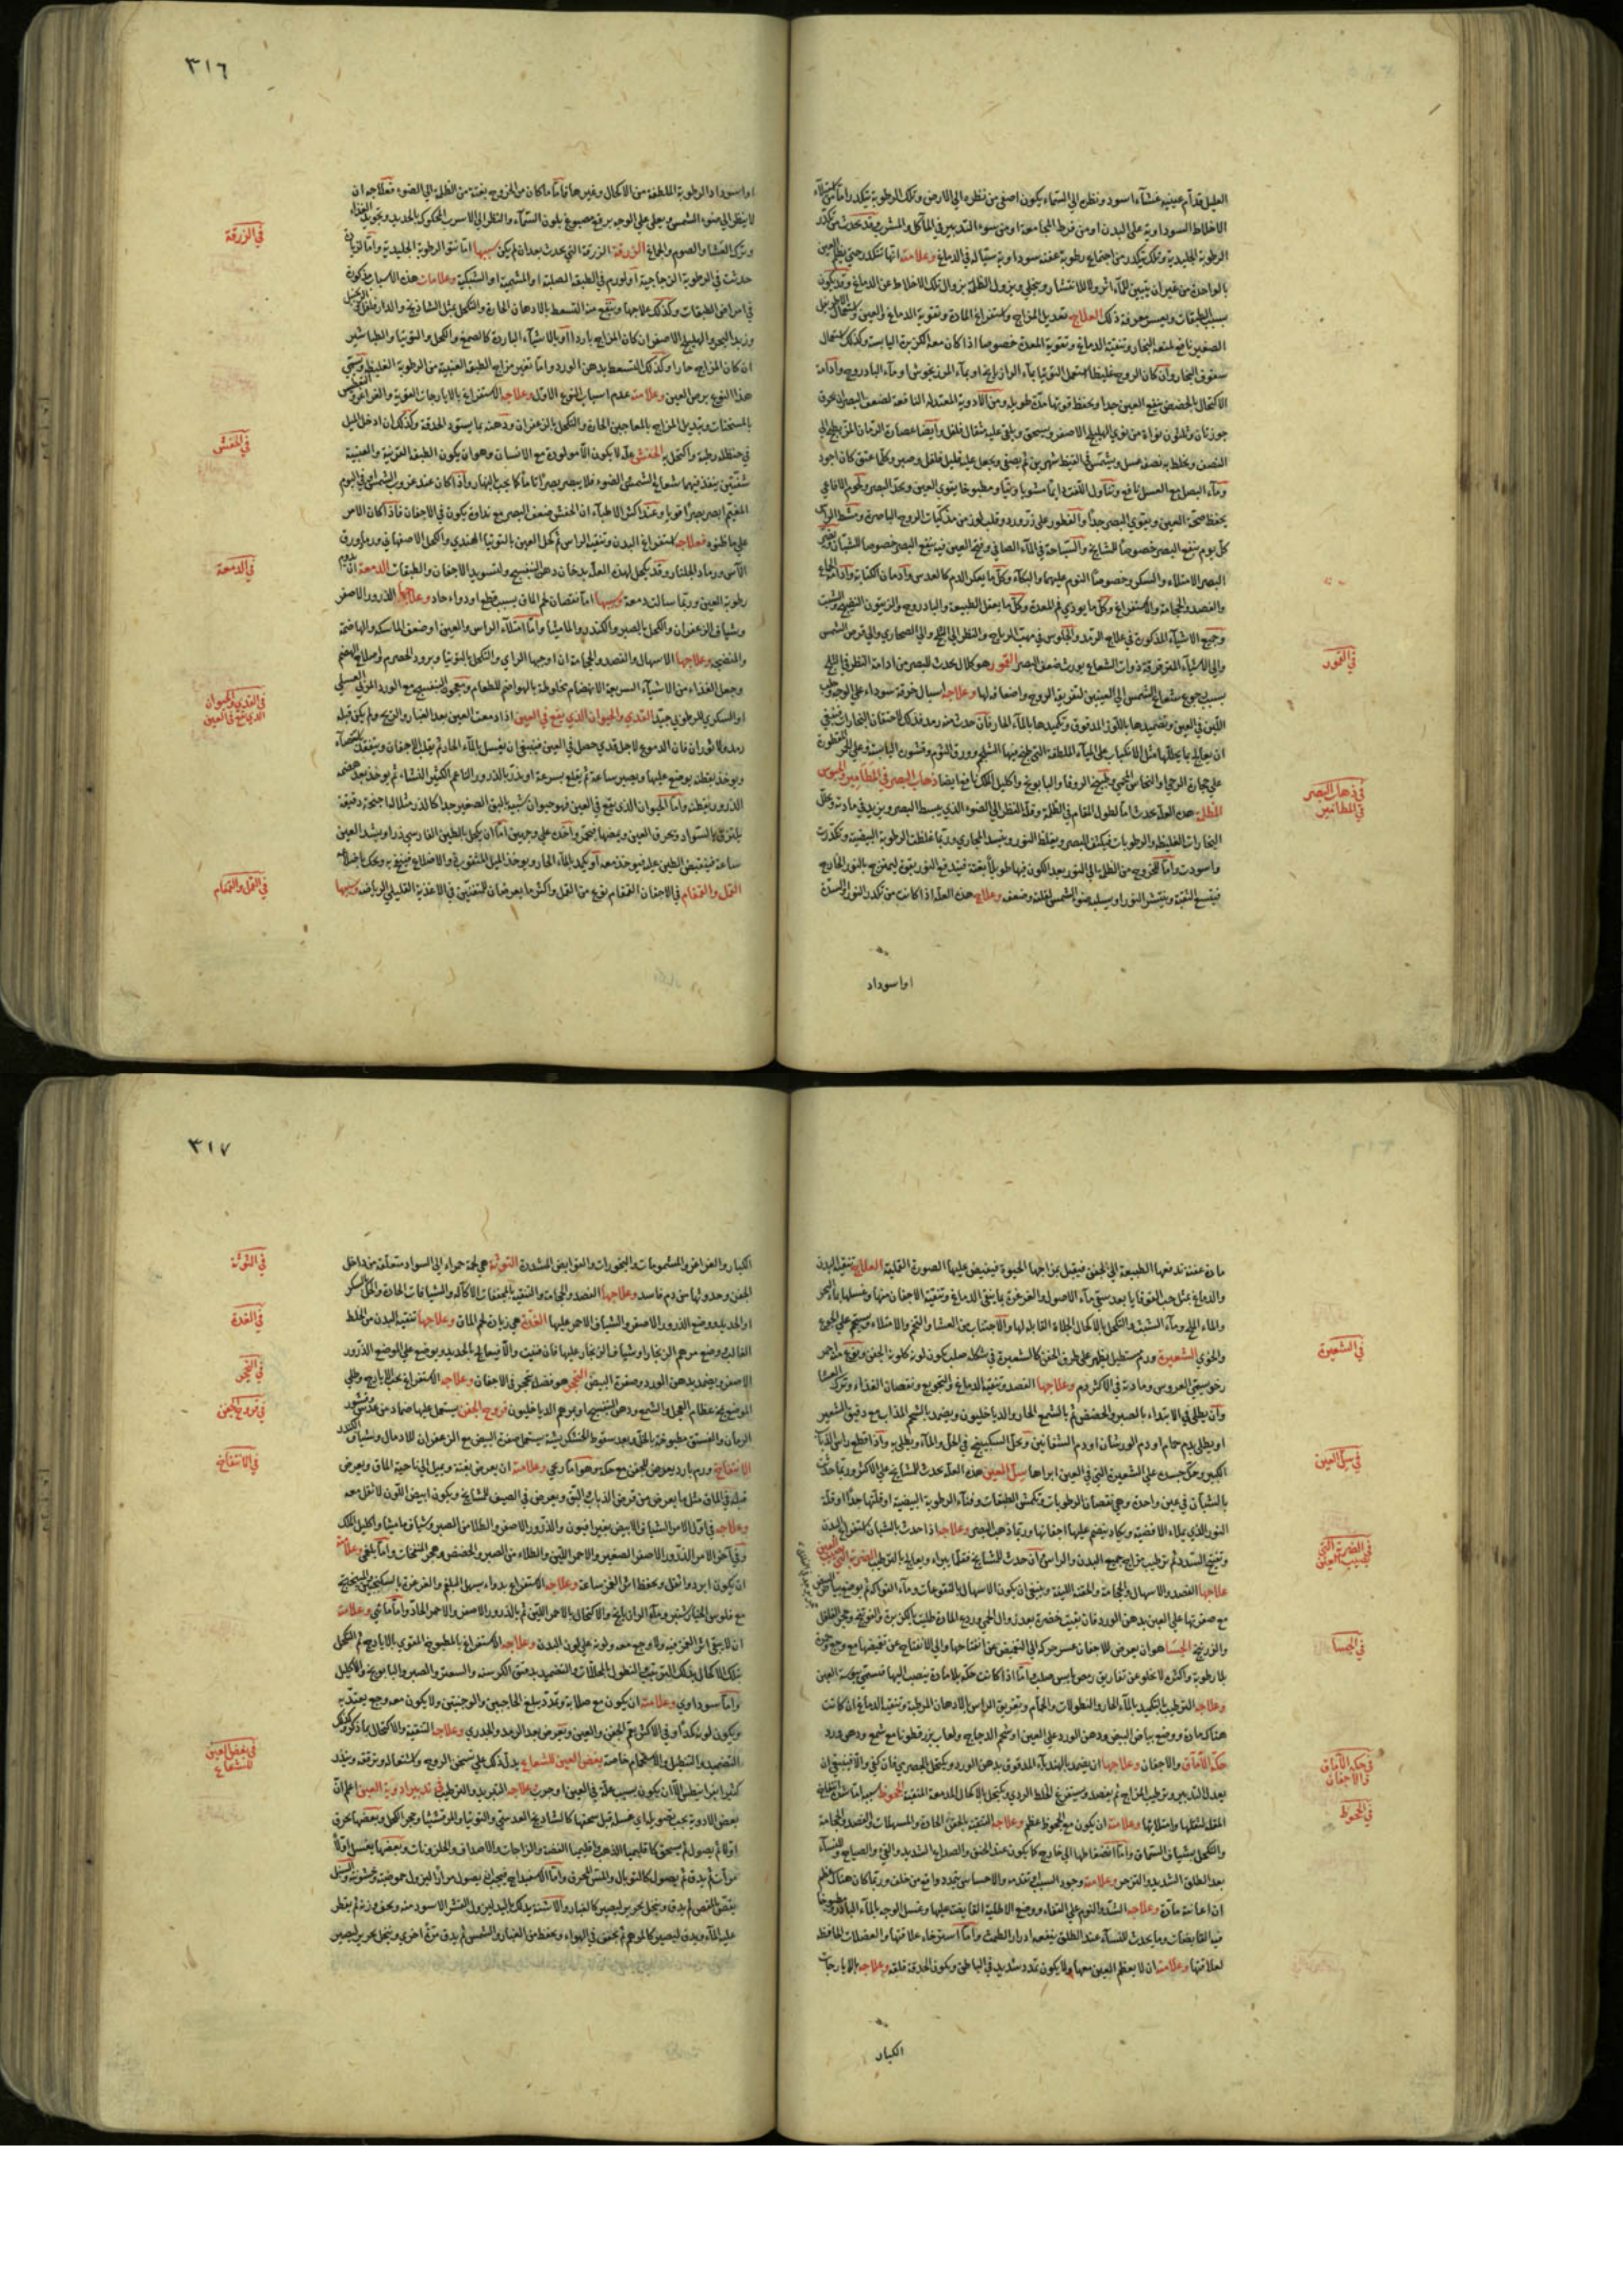 العليل قدام عينيه غشاء اسود ونظره الى السماء يكون اصفى من نظره الى الارض وتلك الرطوبة تتكدر اما من امتلاء
الاخلاط السوداوية على البدن او من فرط المجامعة او من سوء التدبير في المآكل والمشرب وقد يحدث من تكدر
الرطوبة الجليدية وتلك تتكدر من اجتماع رطوبة عفنة سوداوية سيالة في الدماغ وعلامته انها تتكدر حتى
بسبب الطبقات ويعسر معرفة ذلك العلاج تعديل المزاج واستفراغ المادة وتقوية الدماغ والعين
الصغير نافع لمنعه البخار وتنقية الدماغ وتقوية المعدة خصوصا اذا كان معه الكزبرة اليابسة وكذلك استعمال
سفوف البخار وان كان الروح غليظا استعمل التوتيا بماء الرازيانج او بماء المرزنجوش او ماء البادروج وادامة
الاكتحال بالحضض ينفع العين جدا ويحفظ قوتها مدة طويلة ومن الادوية المعتدلة النافعة لضعف البصر ان يحرق
جوزتان وثلثون نواة من نوى الهليلج الاصفر ويسحق ويلقى عليه مثقال فلفل وايضا عصارة الرمان المز يطبخ الى
النصف ويخلط به نصفه عسل ويشمس في القيظ شهرين ثم يصفى ويجعل عليه قليل فلفل وصبر وكلما عتق كان اجود
وماء البصل مع العسل نافع وتناول اللفت دايما مشويا ونيا ومطبوخا يقوي العين ويحد البصر ولحوم الافاعي
يحفظ صحة العين ويقوي البصر جدا
كل يوم ينفع البصر خصوصا للمشايخ والسباحة في الماء الصافي وفتح العين فيه ينفع البصر خصوصا للشبان
البصر الامتلاء والسكر وخصوصا النوم عليهما والبكاء وكل ما يعكر الدم كالعدس وادمان الكتابة وادامة الجماع
والفصد والحجامة والاستفراغ وكل ما يوذي فم المعدة وكل ما يعقل الطبيعة والبادروج والزيتون النضيج والشبت
وجميع الاشياء المذكورة في علاج الرمد والجلوس في مهب الرياح والنظر الى الثلج والى الصحاري والى قرص الشمس
والى الاشياء المفرقة ذوات الشعاع يورث ضعف البصر القمور هو كلال يحدث للبصر من ادامة النظر في الثلج
بسبب رجوع شعاع الشمس الى العينين لتفريقه الروح واضعافه لها وعلاجه اسبال خرقة سوداء على الوجه وحلب
اللبن في العين وتضميدها باللوز المدقوق وتكميدها بالماء الحار فان حدث منه رمد فذلك لاحتقان البخارات فينبغي
ان يعالج بما يحللها مثل الانكباب على المياه الملطفة التي طبخ فيها الشلجم وورق الثوم وقشور اليابسة وعلى الخمر المقطورة
على حجارة الرحى والنحاس المحمى وطبيخ الزوفا والبابونج واكليل الملك نافع ايضا ذهاب البصر في المطامير والحبوس
المظلمة هذه العلة يحدث اما لطول المقام في الظلمة وقلة النظر الى الضوء الذي يبسط البصر ويزيد في مادته ويحلل
البخارات الغليظة والرطوبات فيكثف البصر ويغلظ النور ويفسد المجاري وربما غلظت الرطوبة البيضية وتكدرت
واسودت واما للخروج من الظلمة الى النور بعد الكون فيها طويلا بغتة فيندفع النور بقوة ليمتزج بالنور الخارج
فيتسع الثقبة وينتشر النور او يسلبه ضوء الشمس لقلته وضعفه وعلاج هذه العلة اذا كانت من تكدر النور
او اسوداد
في القمور
في ذهاب البصر
في المطامير
٣١٦
او اسوداد الرطوبة الملطفة من الاكحال وغيرها فاما ما كان من الخروج بغتة من الظلمة الى الضوء فعلاجه ان
لا ينظر الى ضوء الشمس ويعلى على الوجه برقع مصبوغ بلون السماء والنظر الى الاسرب المحكوك بالحديد وتجويد الغذاء
وترك العشا والصوم والجماع الزرقة الزرقة التي يحدث بعد ان لم يكن سببها اما نتو الرطوبة الجليدية واما
حدثت في الرطوبة الزجاجية او لورم في الطبقة الصلبة او المشيمية او الشبكية وعلامات هذه الاسباب مذكورة
في امراض الطبقات وكذلك علاجها وينفع منه التسعط بالادهان الحارة والتكحل بمثل الشاذنج والدارفلفل
وزبد البحر والهليلج الاصفر ان كان المزاج باردا او بالاشياء الباردة كالصمغ والكحل والتوتيا والطباشير
ان كان المزاج حارا وكذلك التسعط بدهن الورد واما تغير مزاج الطبقة العنبية من الرطوبة الغليظة ويسمى
هذا النوع برص العين وعلامته عدم اسباب النوع الاول وعلاجه الاستفراغ بالايارجات القوية والغراغر
بالمسخنات وتبديل المزاج بالمعاجين الحارة والتكحل بالزعفران ودهنه مما يسود الحدقة وكذلك ان ادخل الميل
في حنظلة رطبة واكتحل به الخفش علة لا يكون الا مولودة مع الانسان وهو ان يكون الطبقة القرنية والعنبية
شفتين ينفذ فيهما شعاع الشمس الضوء فلا يبصر بصرا تاما كما يجب بالنهار واذا كان عند غروب الشمس او في اليوم
المغيم ابصر بصرا قويا وعند اكثر الاطباء ان الخفش ضعف البصر مع نداوة يكون في الاجفان فاذا كان الامر
على ما ظنوه فعلاجه استفراغ البدن وتنقية الراس ثم كحل العين بالتوتيا الهندي والكحل الاصفهاني ورماد ورق
الآس ورماد الجلنار وقد يكحل لهذه العلة بدخان دهن البنفسج ولتسويد الاجفان والطبقات الدمعة ان
رطوبة العين وربما سالت دمعة وسببها اما نقصان لحم الماق بسبب قطع او دواء حاد وعلاجها الذرور الاصفر
وشياف الزعفران والكحل بالصبر والكندر والماميثا واما امتلاء الراس والعين او ضعف الماسكة والهاضمة
والمنضجة وعلاجها الاسهال والفصد والحجامة ان اوجبها الراي والتكحل بالتوتيا وبرود الحصرم واصلاح الهضم
وجعل الغذاء من الاشياء السريعة الانهضام مخلوطة بالهواضم للطعام ومعجون البنفسج مع الورد المربى العسلي
او السكري المرطوب جيد القذي والحيوان الذي يقع في العين اذا دمعت العين بعد الغبار والريح ولم يكن قبله
رمد ولا ثوران فان الدموع لاجل قذي حصل في العين فينبغي ان يغسل بالماء الحار ثم يقلب الاجفان ويتفقد
ويوخذ بقطنة يوضع عليها ويصبر ساعة ثم يقلع بسرعة او يذر بالذرور الناعم
الذرور بقطنة واما الحيوان الذي يقع في العين فهو حيوان شبيه البق الصغير جدا كالذر مثلا لها اجنحة دقيقة
يلتزق بالسواد ويحرق العين ويمضها
ساعة فينقبض الطين عليه فيوخذ معه او يكمد بالماء الحار
القمل والقمقام في الاجفان القمقام نوع من القمل واكثر ما يعرضان للمتفننين في الاغذية القليلي الرياضة وسببها
في الزرقة
في الخفش
في الدمعة
في القذي والحيوان
الذي يقع في العين
في القمل والقمقام
مادة عفنة تدفعها الطبيعة الى الجفن فيقبل بمزاجها الحيوة فيفيض عليها الصورة القملية العلاج تنقية البدن
والدماغ بمثل حب القوقايا بعد سقي ماء الاصول والغرغرة بما ينقي الدماغ وتنقية الاجفان منها وغسلها بماء البحر
والماء المالح وماء الشبت والتكحل بالاكحال الجلاءة القاتلة لها والاجتناب من العشا والتخم والامتلاء ويستحم على الجوع
والخوي الشعيرة ورم مستطيل يظهر على طرف الجفن كالشعيرة في شكله صلب يكون لونه كلون الجفن
رخو يسمى العروس ومادته في الاكثر دم وعلاجها الفصد وتنقية الدماغ والتجويع ونقصان الغذاء وترك العشا
وان يطلى في الابتداء بالصبر والحضض ثم بالشمع الحار والدياخليون ويضمد بالشحم المذاب مع دقيق الشعير
او يطلى بدم حمام او دم الورشان او دم الشفانين ويحل السكبينج في الخل والماء ويطلى به واذا قطع راس الذباب
الكبير وحك جسده على الشعيرة التي في العين ابراها سل العين هذه العلة يحدث للمشايخ على الاكثر وربما حدثت
بالشبان في عين واحدة وهي نقصان الرطوبات وتكمش الطبقات وفناء الرطوبة البيضية او قلتها جدا او قلة
النور الذي يملاء الافضية ويكاد ينضم عليها اجفانها وربما ذهب البصر وعلاجه اذا حدث بالشبان استفراغ البدن
وتفتيح السدد ثم ترطيب مزاج جميع البدن والراس وان حدث للمشايخ فقلما يبراء ويعالج بالترطيب الضربة التي تصيب العين
علاجها الفصد والاسهال والحجامة والحقنة اللينة وينبغي ان يكون الاسهال بالنقوعات وماء الفواكه ثم يوضع بياض البيض
مع صفرتها على العين بدهن الورد فان بقيت خضرة بعد زوال الحمى وردع المادة طليت بالكزبرة والفوتنج وحجر الفلفل
والزرنيخ الجسا هو ان يعرض للاجفان عسر حركة الى التغميض عن انفتاحها والى الانفتاح عن تغميضها مع وجع وحمرة
بلا رطوبة واكثره لا يخلو عن تفاريق رمص يابس صلب واما اذا كانت حكة بلا مادة ينصب اليها فتسمى يبوسة العين
وعلاجه الترطيب بالتكميد بالماء الحار والنطولات والحمام وتغريق الراس بالادهان المرطبة وتنقية الدماغ ان كانت
هناك مادة ووضع بياض البيض ودهن الورد على العين او شحم الدجاج ولعاب بزرقطونا مع شمع ودهن ورد
حكة الآماق والاجفان وعلاجها ان يضمد بالهندباء المدقوق بدهن الورد ويكتحل بالحصرمي فان كفى والا فينبغي ان
يعدل التدبير ويرطب المزاج ثم يفصد ويستفرغ الخلط الردي ويكتحل بالاكحال المدمعة المنقية الجحوظ سببه اما انتفاخ
المقلة لثقلها وامتلائها وعلامته ان يكون مع الجحوظ عظم وعلاجه التنقية بالحقن الحادة والمسهلات والفصد والحجامة
والتكحل بشياف السماق واما انضغاطها الى خارج كما يكون عند الخنق والصداع الشديد والقيء والصياح وللنساء
بعد الطلق الشديد والتزحر وعلامته وجود السبب وتقدمه والاحساس بتمدد دافع من خلف وربما كان هناك عظم
ان اعانته مادة وعلاجه الشد والنوم على القفاء ووضع الاطلية القابضة عليها وغسل الوجه بالماء البارد
فيه القابضات وما يحدث للنساء عند الطلق ينفعه ادرار الطمث واما استرخاء علاقتها والعضلات الحافظة
لعلاقتها وعلامته ان لا يعظم العين معها ولا يكون تمدد شديد في الباطن ويكون الحدقة قلقة وعلاجه بالايارجات
الكبار
في الشعيرة
في سل العين
في الضربة التي
تصيب العين
في الجسا
في حكة الآماق
والاجفان
في الجحوظ
٣١٧
الكبار والغراغر والمشمومات والبخورات والقوابض المشددة التوثة هي لحمة حمراء الى السواد متعلقة من داخل
الجفن وحدوثها من دم فاسد وعلاجها الفصد والحجامة والتنقية بالمجففات الاكالة والشيافات الحادة والحك بالسكر
او الحديد ووضع الذرور الاصفر والشياف الاحمر عليها الغدة هي زيادة لحم الماق وعلاجها تنقية البدن من الخلط
الغالب ووضع مرهم الزنجار او شياف الزنجار عليها فان فنيت والا فيعالج بالحديد ويوضع على الموضع الذرور
الاصفر ويضمد بدهن الورد وصفرة البيض التحجر هو فضلة تتحجر في الاجفان وعلاجه الاستفراغ بحب الايارج وطلي
الموضع بمخ عظام العجل والشمع ودهن البنفسج او مرهم الدياخليون قروح الجفن يستعمل عليها ضماد من عدس
الرمان والفستق مطبوخة بالخل وبعد سقوط الخشكريشة يستعمل صفرة البيض مع الزعفران للادمال وشياف الكندر
الانتفاخ ورم بارد يعرض للجفن مع حكة وهو اما ريحي وعلامته ان يعرض بغتة ويميل الى ناحية الماق ويعرض
قبله في الماق مثل ما يعرض من قرص الذباب والبق ويعرض في الصيف للمشايخ ويكون ابيض اللون لا ثقل معه
وعلاجه في اول الامر الشياف الابيض بغير افيون والذرور الاصفر والطلا من الصبر وشياف ماميثا واكليل الملك
وفي آخر الامر الذرور الاصفر الصغير والاحمر اللين والطلاء من الصبر والحضض وهجر المنفخات واما بلغمي وعلامته
ان يكون ابرد واثقل ويحفظ اثر الغمز ساعة وعلاجه الاستفراغ بدواء يسهل البلغم والغرغرة بالسكنجبين
مع فلوس الخيارشنبر وماء الرازيانج والاكتحال بالاحمر اللين ثم بالذرور الاصفر والاحمر الحاد واما مائي وعلامته
ان لا يبقى اثر الغمز فيه ولا وجع معه ولونه على لون البدن وعلاجه الاستفراغ بالمطبوخ المقوى بالايارج ثم التكحل
بتلك الاكحال بذلك الترتيب ثم النطول بالمحللات والتضميد بدقيق الكرسنة والسعتر والصبر والبابونج والاكليل
واما سوداوي وعلامته ان يكون مع صلابة وتمدد يبلغ الحاجبين والوجنتين ولا يكون معه وجع يعتد به
ويكون لونه كمدا وفي الاكثر يعم الجفن والعين ويعرض بعد الرمد والجدري وعلاجه التنقية والاكتحال بما ذكر
التضميد والتنطيل والاستحمام خاصة بغض العين للشعاع يدل ذلك على تسخن الروح واشتعاله وترققه وينذر
كثيرا بقرانيطس الا ان يكون بسبب علة في العين او جرب علاجه التبريد والترطيب في تدبير ادوية العين اعلم ان
بعض الادوية يجب تصويله اي غسله قبل سحقها كالشادنج العدسي والتوتيا والمرقشيثا وحجر الكحل وبعضها يحرق
اولا ثم يصول ثم يسحق كاقليميا الذهب واقليميا الفضة والزاجات والاصداف والحلزونات وبعضها يغسل اولا
مرات ثم يدق ثم يصول كالتوبال والمس المحرق واما الاسفيداج فيجب ان يصول مرارا ليزول حموضته وخشونته
يقص بالمقص ثم يدق وينخل بحرير ليصير كالغبار والاشنة يدلك باليد ليزول القشر الاسود منه ويحق وزنه ثم يقطر
عليه الماء ويدق ليصير كالمرهم ثم يجفف في الهواء ويحفظ من الغبار والشمس ثم يدق مرة اخرى وينخل بحرير ليصير
في التوثة
في الغدة
في التحجر
في قروح الجفن
في الانتفاخ
في بغض العين
للشعاع